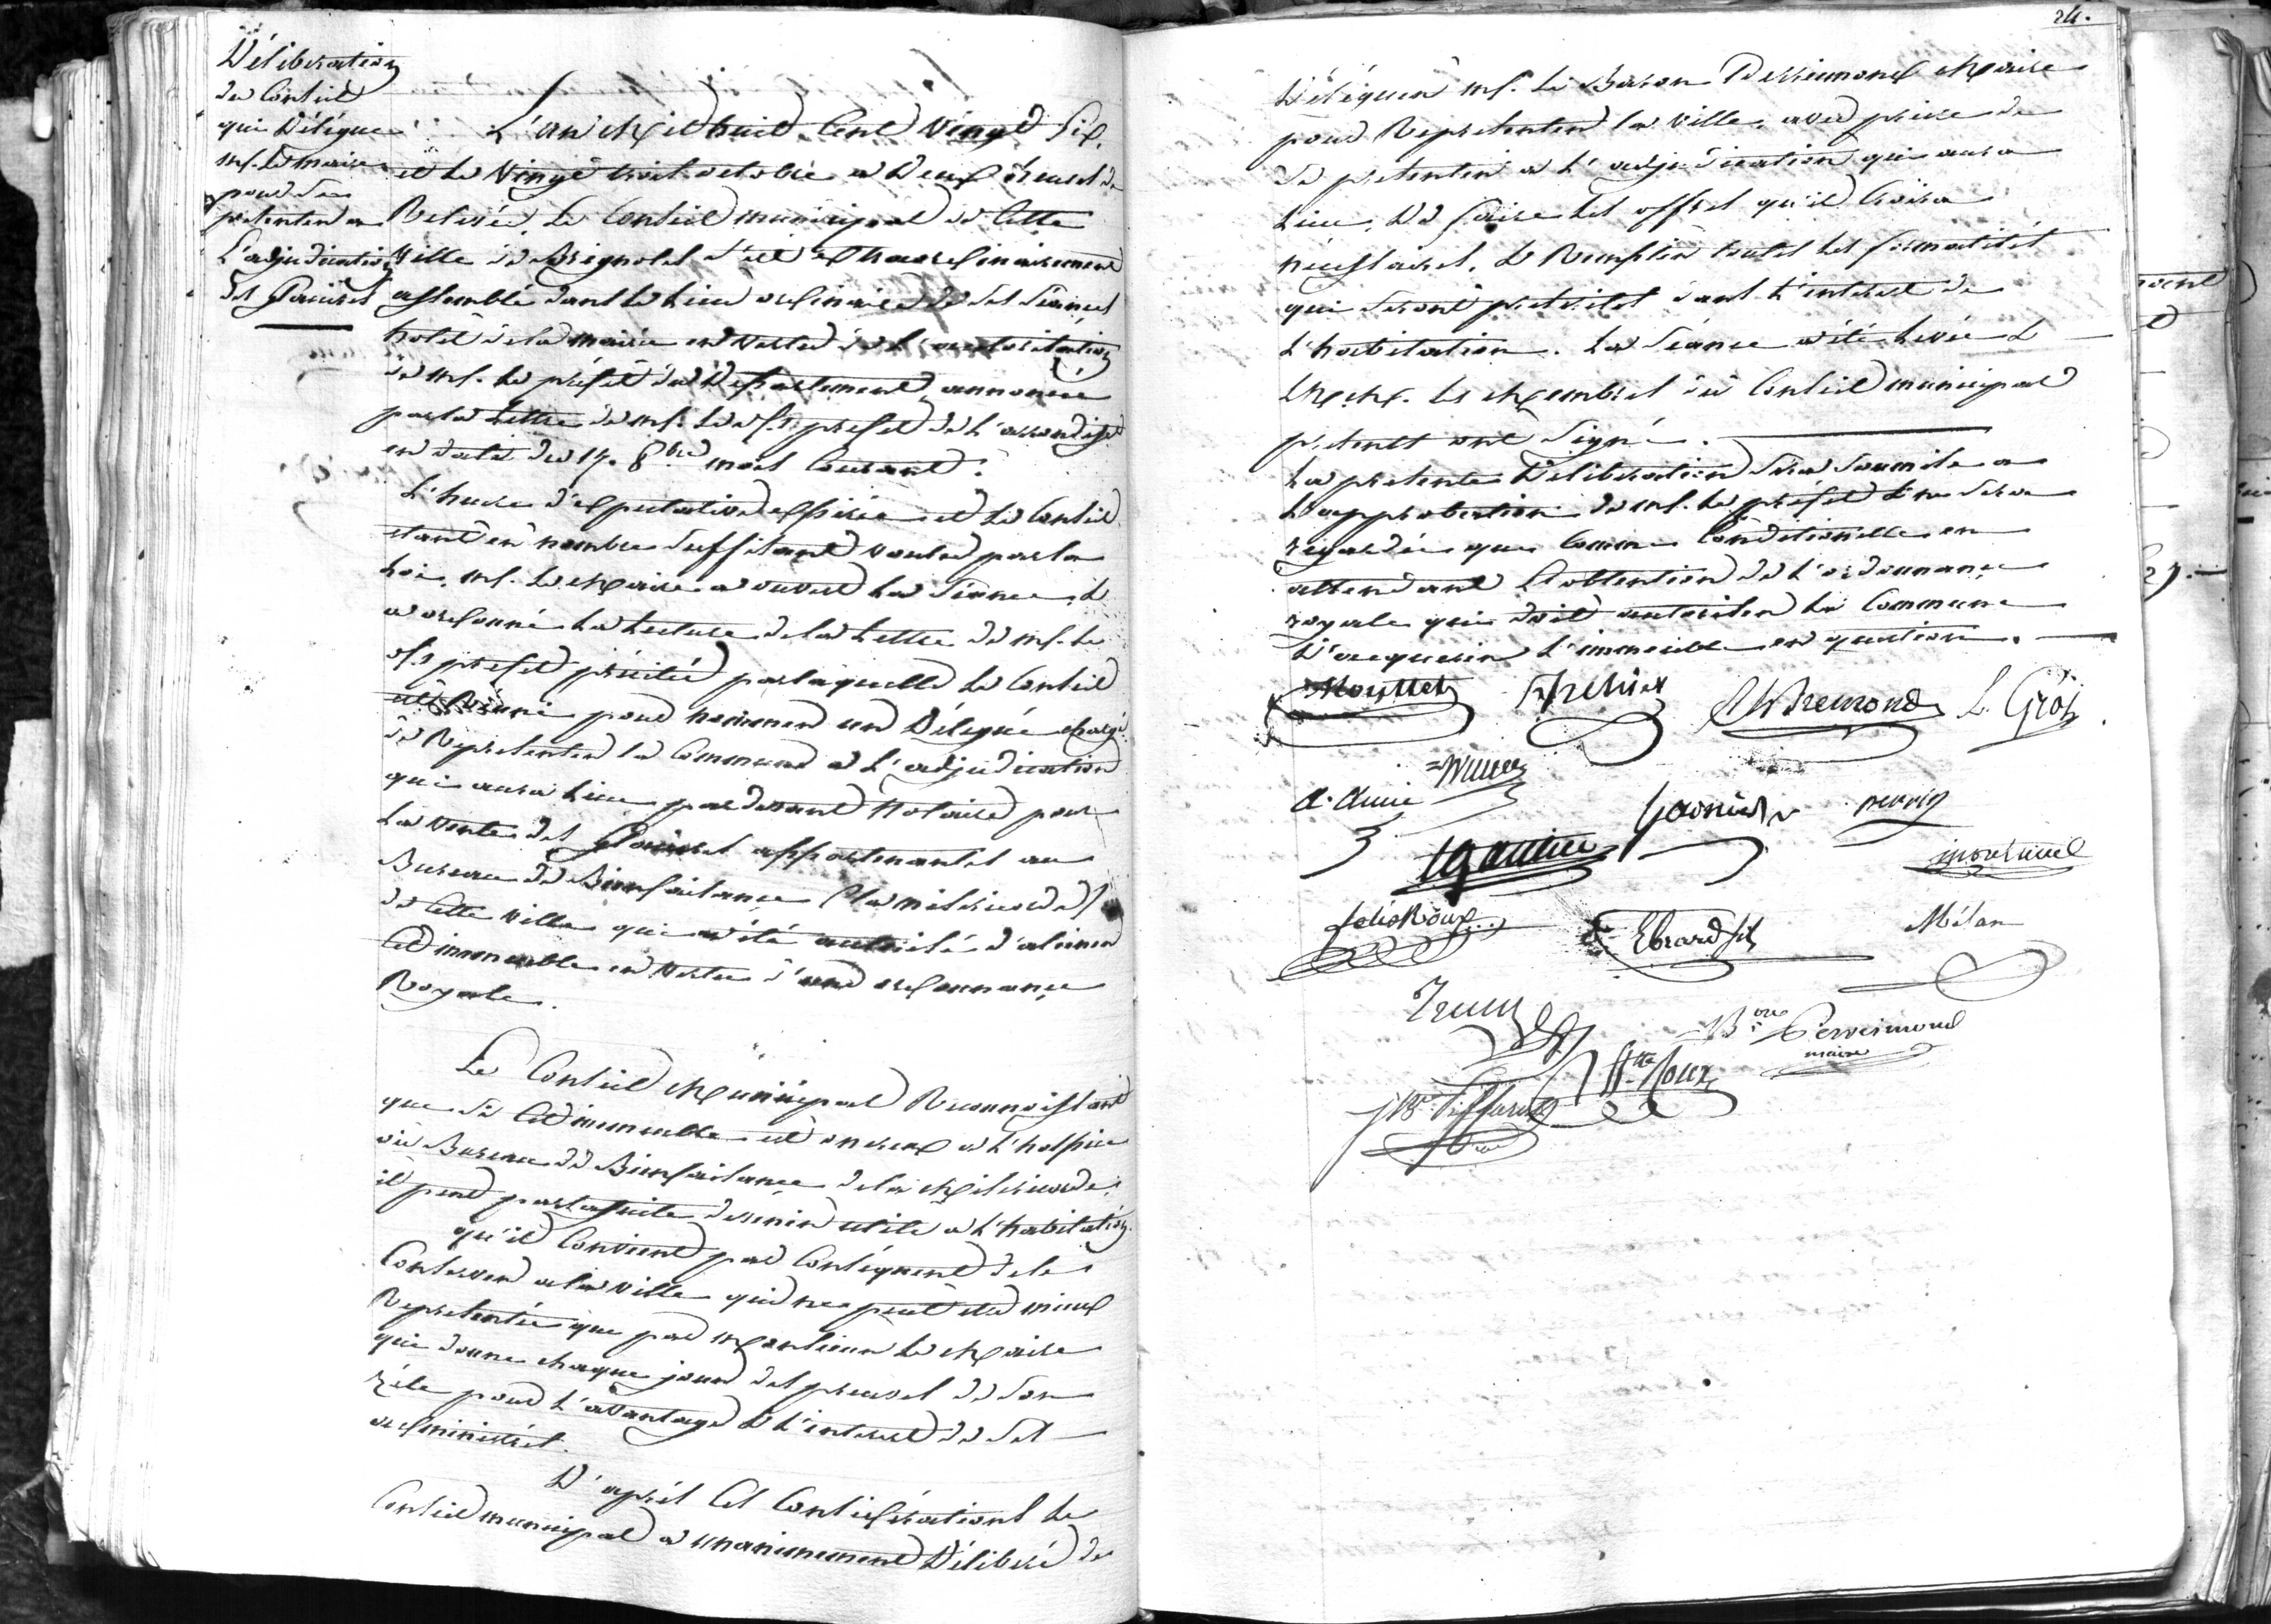 Déliberation
du Conseil
qui Délégue
mr. le maire
pour se
présenter a
L'adjudication
des Паüses
L'an Mil huit Cent Vingt Six,
et le Vingt trois octobre a Deux heures de
Relevée, Le Conseil municipal de Cette
Ville de Brignoles s'est Extraordinairement
assemblé dans le Lieu ordinaire de ses séances
hotel de la mairie en vertu de L'autorisation
de mr. le préfet du Département, annoncée
par la Lettre de mr. le s.s préfet de L'arrondist
en date du 17. 8bre mois Courant.
L'heure d'expectative expirée et le Conseil
étant en nombre suffisant voulu par la
Loi, mr. le Maire a ouvert la séance, &
a ordonné la Lecture de la Lettre de mr. le
s.s préfet précitée par laquelle le Conseil
est Réuni pour nommer un Délégué chargé
de Représenter la Commune a L'adjudication
qui aura Lieu pardevant Notaire pour
la vente des appartenantes au
Bureau de Bienfaisance (la miséricorde)
de Cette Ville qui a été autorisé d'aliéner
Cet immeuble en vertu d'une ordonnance
Royale.
Le Conseil Municipal Reconnoissant
que si Cet immeuble est onéreux a L'hospice
du Bureau de Bienfaisance de la Miséricorde,
il peut par la suite devenir utile a L'habitation.
qu'il Convient par Conséquent de le
Conserver a la Ville qui ne peut être mieux
Représentée que par Monsieur le Maire
qui donne chaque jour des preuves de son
zèle pour L'avantage & L'interest de ses
administrés.
D'après Ces Considérations le
Conseil municipal a unanimement Délibéré de
24.
Déléguer mr. le Baron Desseimond Maire
pour Représenter la Ville, avec prière de
se présenter a L'adjudication qui aura
Lieu, de faire les offres qu'il Croira
nécessaires, & Remplir toutes les formalités
qui seront prescrites dans L'interest de
L'habitation. La séance a été Levée &
MM. les Membres du Conseil municipal
présents ont signé.
La présente Déliberation sera soumise a
L'approbation de mr. le préfet & ne sera
regardée que Comme Conditionelle en
attendant L'obtention de L'ordonnance
royale qui doit autoriser la Commune
D'acquerir L'immeuble en question.
Mouttet
L. Gros
Garnier
felix Roux
Ebrard fils
Mélan
Bon Desseimond
maire
Roux